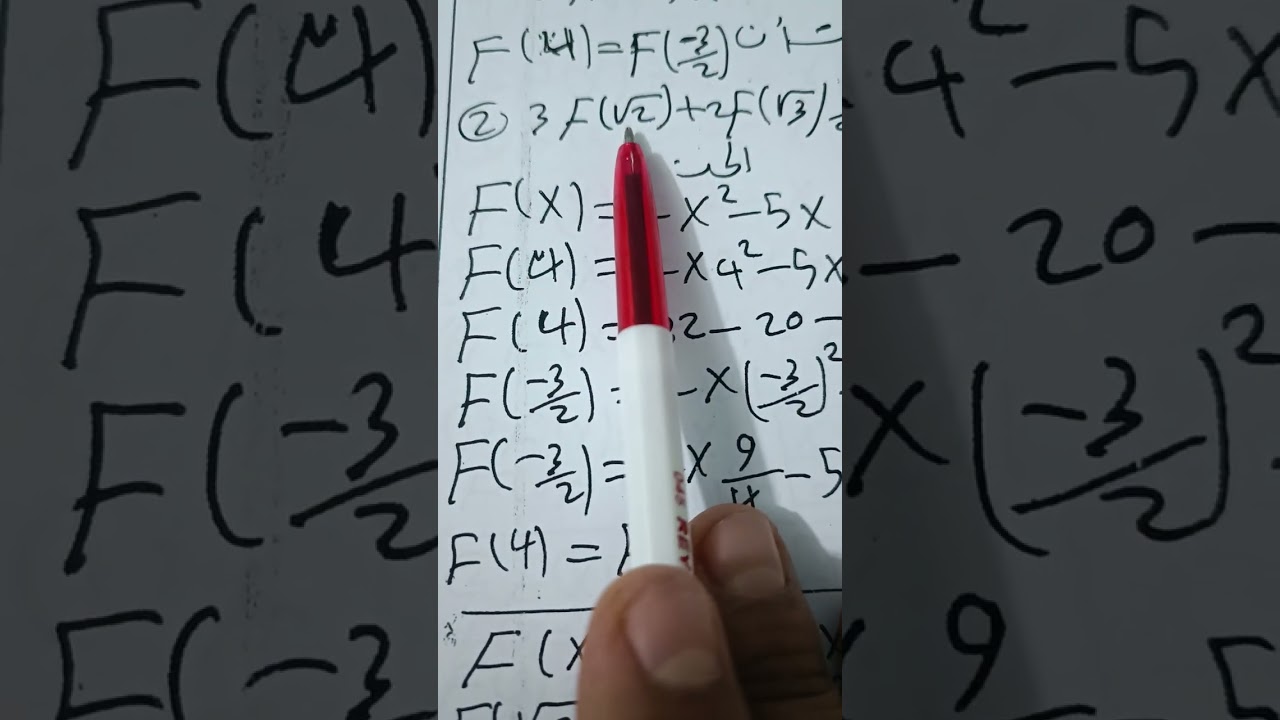 F(4)=F(-3/2)
② 3F(√2)+2F(√3)
F(X)= -X²-5X
F(4)= -X4²-5X
F(4)= 2-20-
F(-3/2)= -X(-3/2)²
F(-3/2)= X 9/4 -5
F(4)=
F(X
F(√2